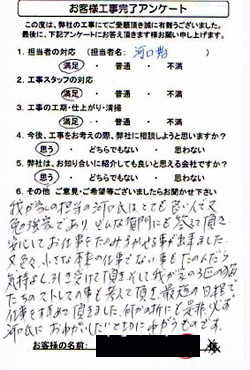 お客様工事完了アンケート
この度は、弊社の工事にてご愛顧頂き誠に有難うございました。
最後に、下記アンケートにお答え頂きます様お願い申し上げます。
1. 担当者の対応 (担当者名: 河口 )
満足 ・ 普通 ・ 不満
2. 工事スタッフの対応
満足 ・ 普通 ・ 不満
3. 工事の工期・仕上がり・清掃
満足 ・ 普通 ・ 不満
4. 今後、工事をお考えの際、弊社に相談しようと思いますか?
思う ・ どちらでもない ・ 思わない
5. 弊社は、お知り合いに紹介しても良いと思える会社ですか?
思う ・ どちらでもない ・ 思わない
6. その他 ご意見・ご希望等ございましたらお聞かせ下さい
我が家の担当の河口氏はとても良い人で又
勉強家であり、どんな質問にも答えて頂き、
安心してお仕事をたのみまかせる事が出来ました。
又色々、小さな本来の仕事でない事もたのんだら
気持よく引き受けて頂き、そして我が家の3匹の猫
たちのストレスの事も考えて頂き、最短の日程で
仕事をすすめて頂きました。何かの折にも是非、必ず
河口氏におねがいしたいと
お客様の名前: 様